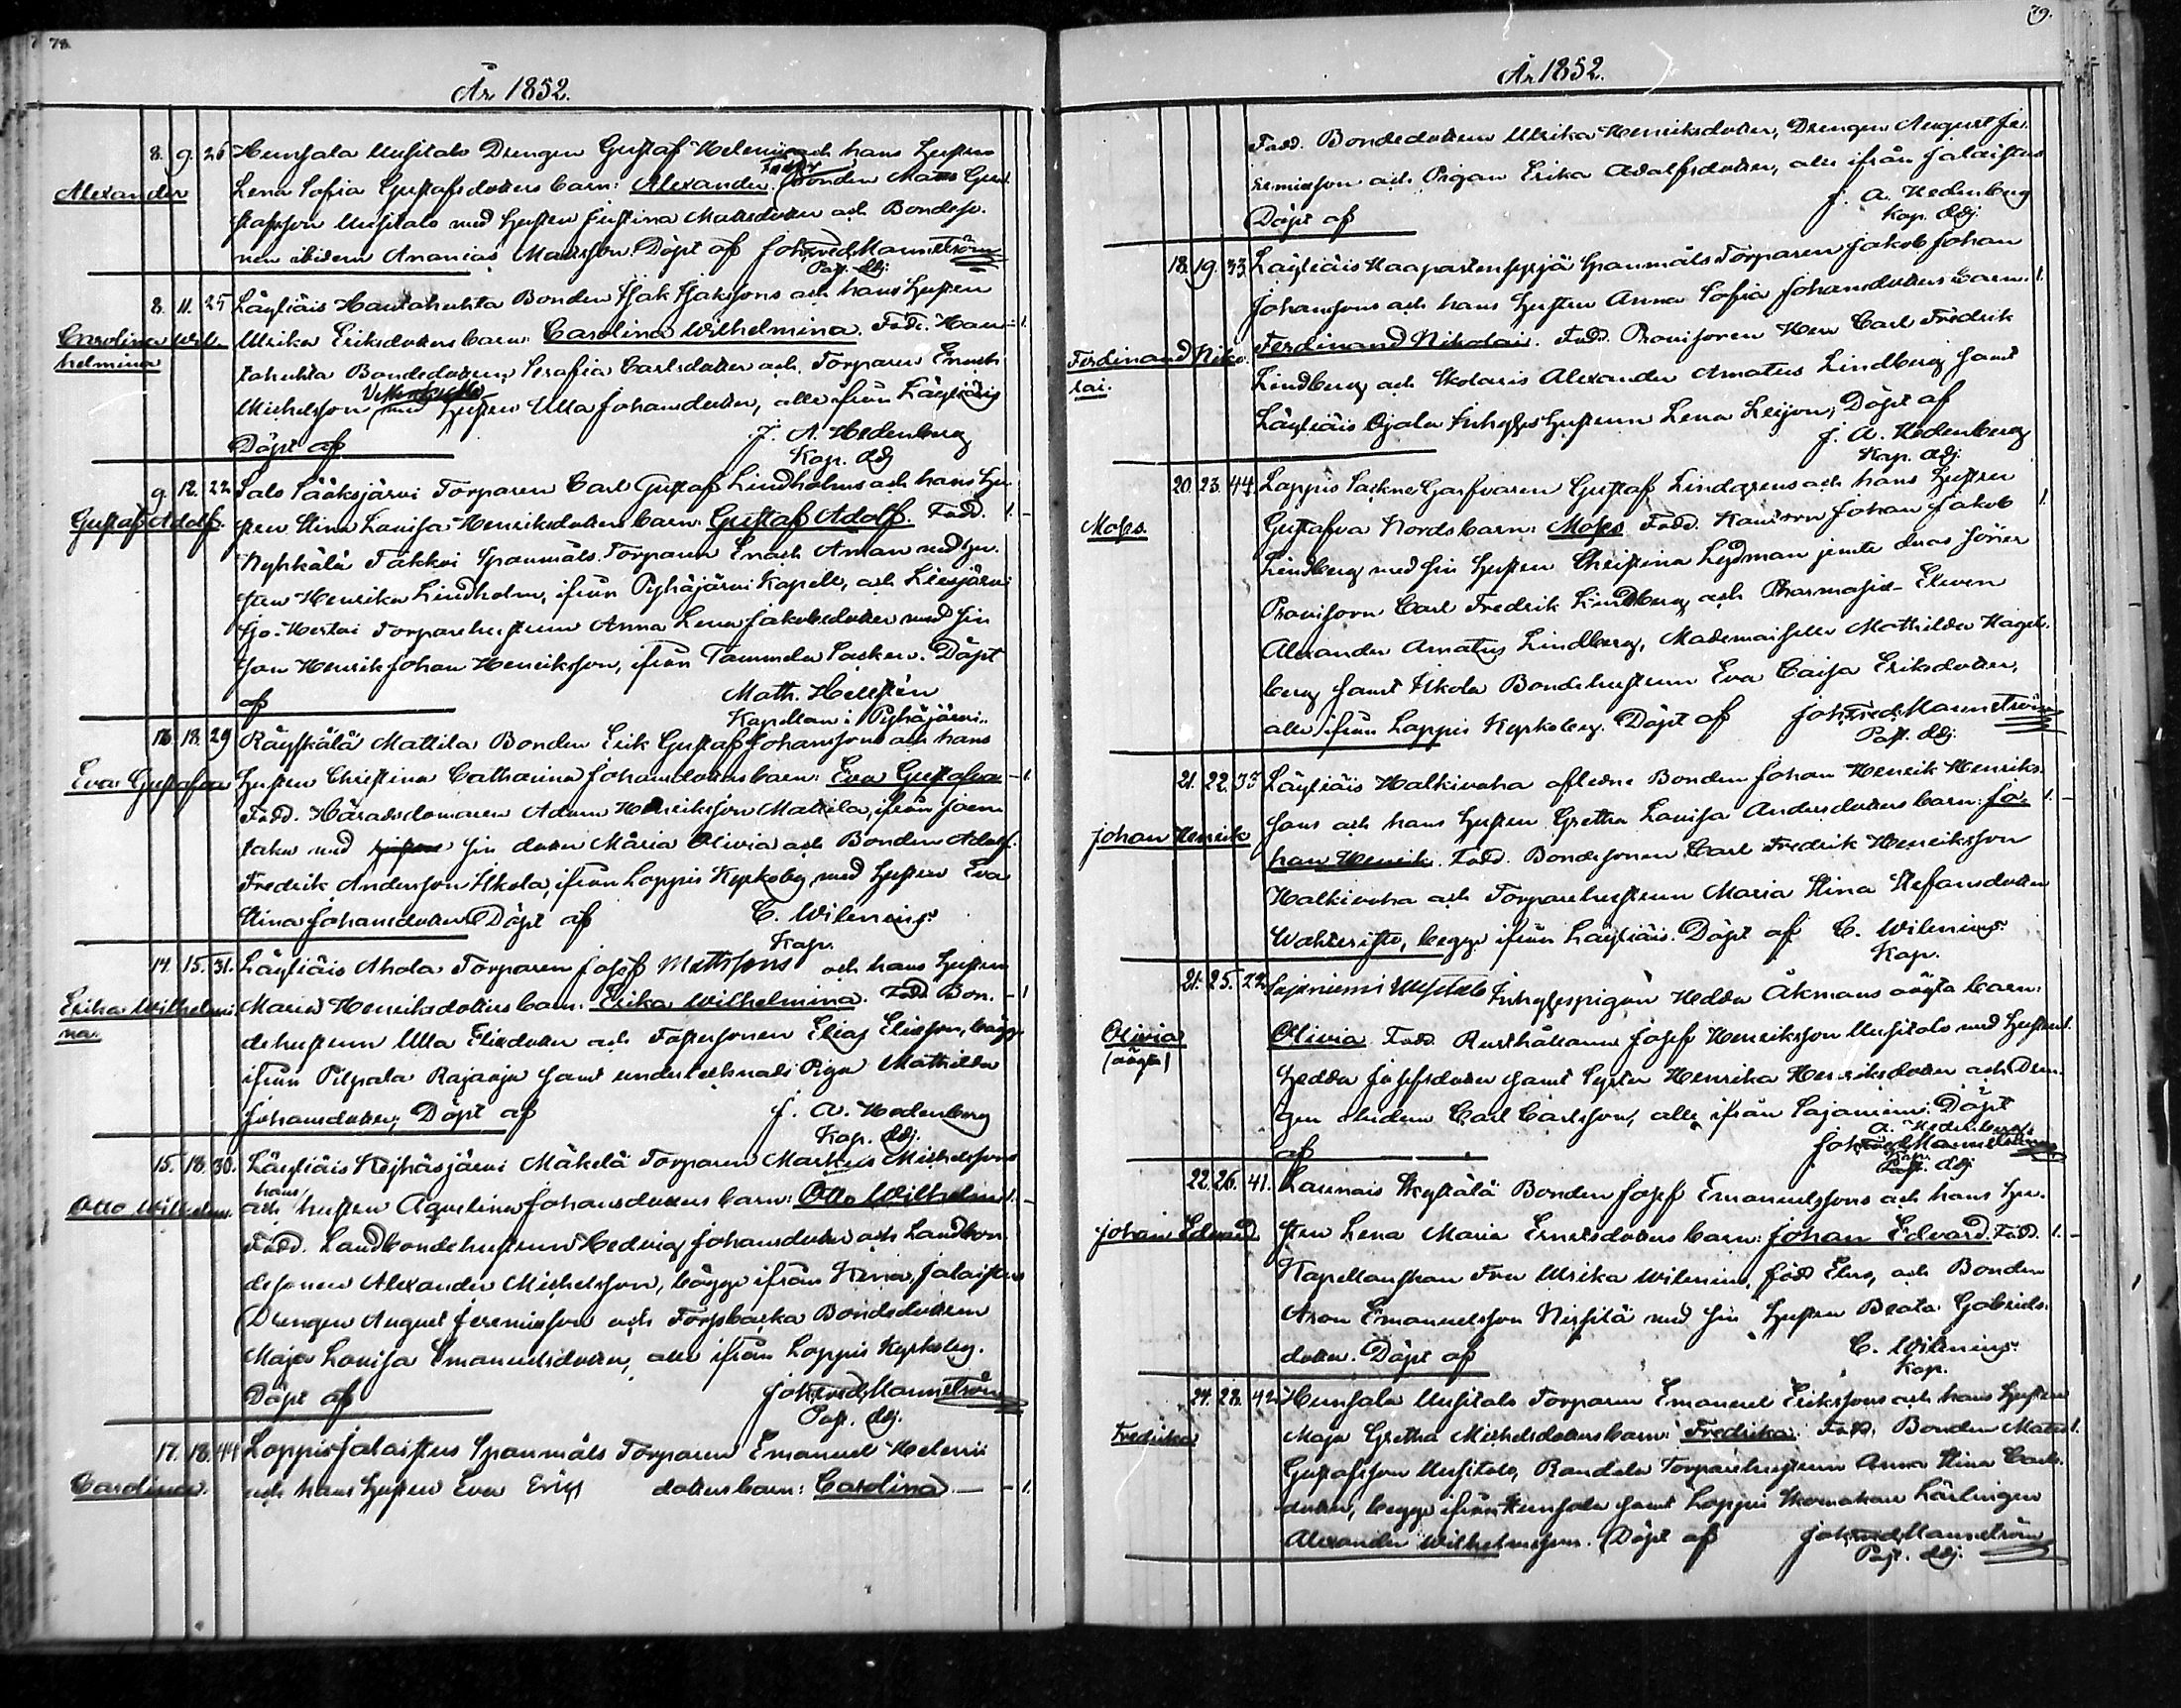 78.
År 1852.
8. 9. 26 Hunsala Uusitalo Drengen Gustaf Helenii och hans Hustru
Alexander
Lena Sofia Gustafsdotters barn: Alexander. Fadd. Bonden Mats Gus-
tafsson Uusitalo med Hustru Justina Matsdotter och Bondeso-
nen ibidem Ananias Matsson. Döpt af Joh. Fred. Mannström
Past. Adj.
8. 11. 25 Läyliäis Hautahuhta Bonden Isak Isakssons och hans Hustru
Carolina Wil-
helmina
Ulrika Eriksdotters barn: Carolina Wilhelmina. Fadd. Hau- 1.
tahuhta Bondedottern Serafia Carlsdotter och Torparen Enoch
Michelsson med Hustru Ulla Johansdotter, alla ifrån Läyliäis
Döpt af J. A. Hedenberg
Kap. Adj.
9. 12. 22 Salo Sääksjärvi Torparen Carl Gustaf Lindholms och hans Hu-
Gustaf Adolf.
stru Stina Lovisa Henriksdotters barn: Gustaf Adolf. Fadd. 1.
Nyhkälä Takkoi Spanmåls Torparen Enoch Aman med Hu-
stru Henrika Lindholm, ifrån Pyhäjärvi Kapell, och Liesjärvi
Torparehustrun Anna Lena Jakobsdotter med sin
Son Henrik Johan Henriksson, ifrån Tammela Socken. Döpt
af Math. Hellstén
Kapellan i Pyhäjärvi.
16. 18. 29 Räyskälä Mattila Bonden Erik Gustaf Johanssons och hans
Eva Gustafva
Hustru Christina Catharina Johansdotters barn: Eva Gustafva 1.
Fadd. Häradsdomaren Adam Henriksson Mattila, ifrån
med sin dotter Maria Olivia och Bonden Adolf
Fredrik Andersson Skola, ifrån Loppis Kyrkoby, med Hustru Eva
Stina Johansdotter. Döpt af C. Wilenius
Kap.
14. 15. 31. Läyliäis Ahola Torparen Josef Mattssons och hans Hustru
Erika Wilhelmi-
na.
Maria Henriksdotters barn: Erika Wilhelmina. Fadd. Bon- 1
dehustrun Ulla Eliædotter och Fostersonen Elias Eliasson, bägge
ifrån Pilpala Rajaoja samt undertecknads Piga Mathilda
Johansdotter, Döpt af J. A. Hedenberg
Kap. Adj.
15. 18. 30. Läyliäis Keihäsjärvi Mäkelä Torparen Markus Michelssons
Otto Wilhelm.
och hans hustru Aqvelina Johansdotters barn: Otto Wilhelm 1.
Fadd. Landbondehustrun Hedvig Johansdotter och Landbon-
desonen Alexander Michelsson, bägge ifrån Jalaistus
Drengen August Jeremiæson och Torpbacka Bondedottern
Maja Lovisa Emanuelsdotter, alla ifrån Loppis Kyrkoby.
Döpt af Joh. Fred. Mannström
Past. Adj.
17. 18. 44 Loppis Jalaistus Spanmåls Torparen Emanuel Helenii
Carolina.
och hans Hustru Eva Eriks dotters barn: Carolina. 1.
79.
År 1852.
Fadd. Bondedottern Ulrika Henriksdotter, Drengen August Je-
remiæson och Pigan Erika Adolfsdotter, alla ifrån Jalaistus
Döpt af J. A. Hedenberg
Kap. Adj.
18. 19. 33. Läyliäis Haapastensyrjä Spanmåls Torparen Jakob Johan
Johanssons och hans Hustru Anna Sofia Johansdotters barn. 1.
Ferdinand Niko-
lai.
Ferdinand Nikolai. Fadd. Provisoren Herr Carl Fredrik
Lindberg och Skolaris Alexander Amatus Lindberg samt
Läyliäis Ojala Inhyseshustrun Lena Leijon, Döpt af
J. A. Hedenberg
Kap. Adj.
20. 23. 44. Loppis Sockne Garfvaren Gustaf Lindgrens och hans Hustru
Moses.
Gustafva Nords barn: Moses. Fadd. Kantorn Johan Jakob 1.
Lindberg med sin Hustru Christina Lydman jemte deras söner
Provisorn Carl Fredrik Lindberg och Pharmasie-Eleven
Alexander Amatus Lindberg, Mademoiselle Mathilda Hagel-
berg samt Skola Bondehustrun Eva Caisa Eriksdotter,
alla ifrån Loppis Kyrkoby. Döpt af Joh. Fred. Mannström
Past. Adj.
21. 22. 33 Läyliäis Halkivaha aflidne Bonden Johan Henrik Henriks-
Johan Henrik
sons och hans Hustru Gretha Lovisa Andersdotters barn: Jo- 1.
han Henrik. Fadd. Bondesonen Carl Fredrik Henriksson
Halkivaha och Torparehustrun Maria Stina Stefansdotter
Wahteristo, begge ifrån Läyliäis. Döpt af C. Wilenius.
Kap.
21. 25. 22 Sajaniemi Uusitalo Inhysespigan Hedda Åkmans oägta barn:
Olivia
(oägta)
Olivia. Fadd. Rusthållaren Josef Henriksson Uusitalo med Hustru 1.
Hedda Josefsdotter samt Syster Henrika Henriksdotter och Dren-
gen ibidem Carl Carlsson, alla ifrån Sajaniemi. Döpt
af A. Hedenberg
Joh. Fred. Mannström
Kap. Adj
22. 26. 41. Launais Syrjälä Bonden Josef Emanuelssons och hans Hu-
Johan Edvard
stru Lena Maria Ernstsdotters barn: Johan Edvard. Fadd. 1.
Kapellanskan Fru Ulrika Wilenius, född Elers, och Bonden
Aron Emanuelsson Nissilä med sin Hustru Beata Gabriels-
dotter. Döpt af C. Wilenius.
Kap.
24. 28. 42 Hunsala Uusitalo Torparen Emanuel Erikssons och hans Hustru
Fredrika
Maja Gretha Michelsdotters barn: Fredrika. Fadd. Bonden Mats 1.
Gustafsson Uusitalo, Randala Torparehustrun Anna Stina Carls-
dotter, begge ifrån Hunsala samt Loppis Skomakare Lärlingen
Alexander Wilhelmsson. Döpt af Joh. Fred. Mannström
Past. Adj.